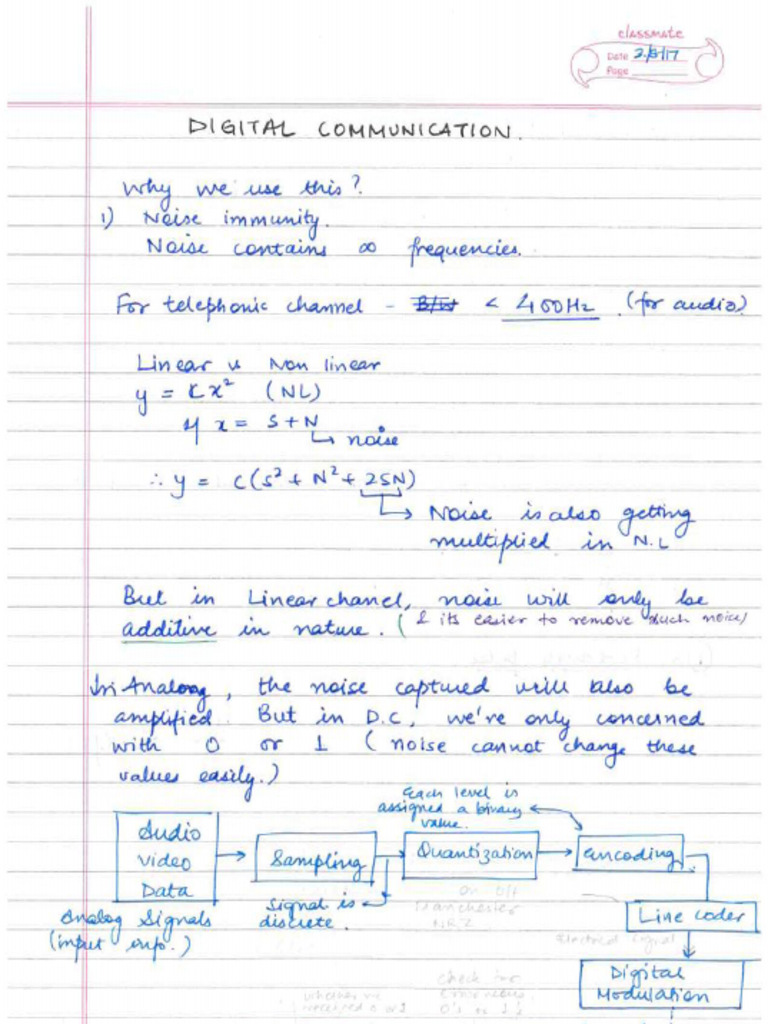 classmate
Date 2/8/17
Page
DIGITAL COMMUNICATION.
Why we use this?
1) Noise immunity.
Noise contains ∞ frequencies.
For telephonic channel - B/W < 400Hz (for audio)
Linear vs Non linear
y = Cx² (NL)
If x = S+N
↳ noise
∴ y = C(S² + N² + 2SN)
↳ Noise is also getting
multiplied in N.L
But in Linear channel, noise will only be
additive in nature. (& its easier to remove such noise)
In Analog, the noise captured will also be
amplified. But in D.C, we're only concerned
with 0 or 1 (noise cannot change these
values easily.)
Each level is
assigned a binary
value.
Audio
Video
Data
Sampling
Quantization
Encoding
Signal is
discrete.
Analog Signals
(input info.)
on off
Manchester
NRZ
Line coder
Electrical signal
Digital
Modulation
check for
erroneous
0's or 1's
whether we
received 0 or 1